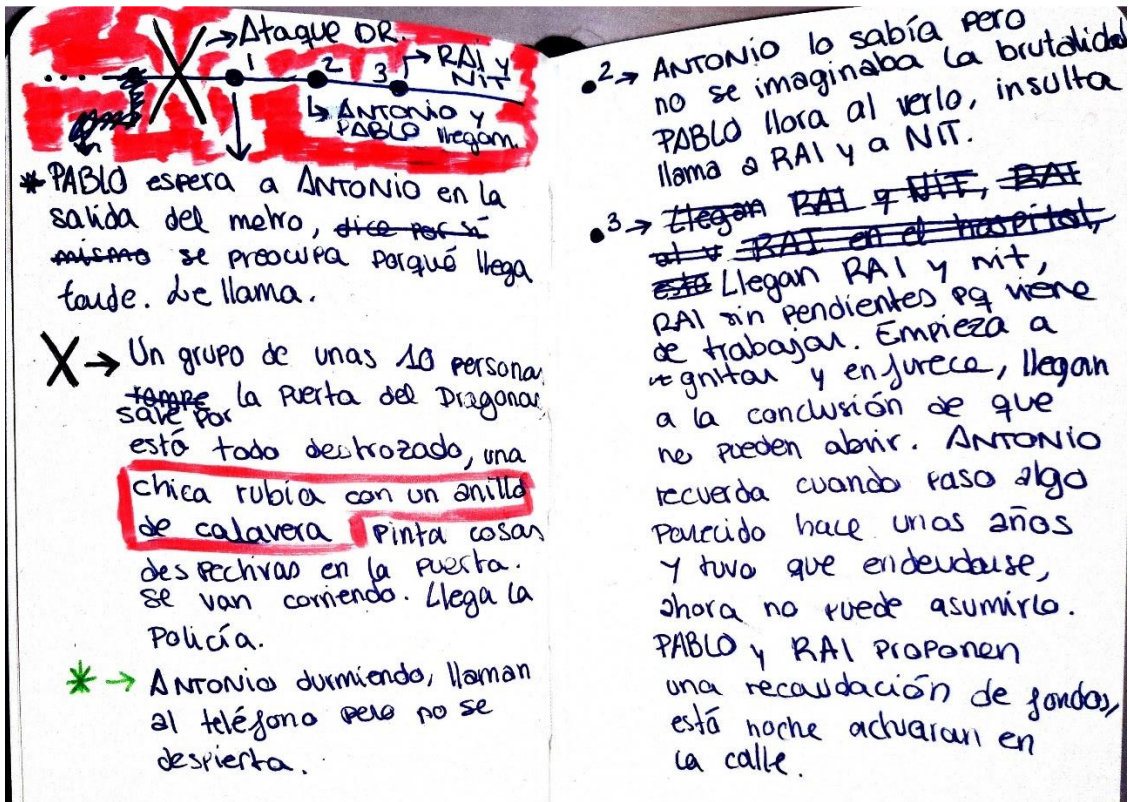 → Ataque DR.
... 1 2 3 → RAI y
NIT
↳ ANTONIO y
PABLO llegan.
* PABLO espera a ANTONIO en la
salida del metro, dice por sí
mismo se preocupa porqué llega
tarde. Le llama.
X → Un grupo de unas 10 persona
rompe la puerta del Dragonas
sale por
está todo destrozado, una
chica rubia con un anillo
de calavera pinta cosas
despechivas en la puerta.
se van corriendo. Llega la
Policía.
* → ANTONIO durmiendo, llaman
al teléfono pero no se
despierta.
•2→ ANTONIO lo sabía pero
no se imaginaba la brutalidad
PABLO llora al verlo, insulta
llama a RAI y a NIT.
•3→ Llegan RAI y NIT, RAI
al v RAI en el hospital,
está Llegan RAI y nit,
RAI sin pendientes pq viene
de trabajar. Empieza a
gritar y enfurece, llegan
a la conclusión de que
no pueden abrir. ANTONIO
recuerda cuando paso algo
parecido hace unos años
y tuvo que endeudarse,
ahora no puede asumirlo.
PABLO y RAI proponen
una recaudación de fondos,
está noche actuaran en
la calle.